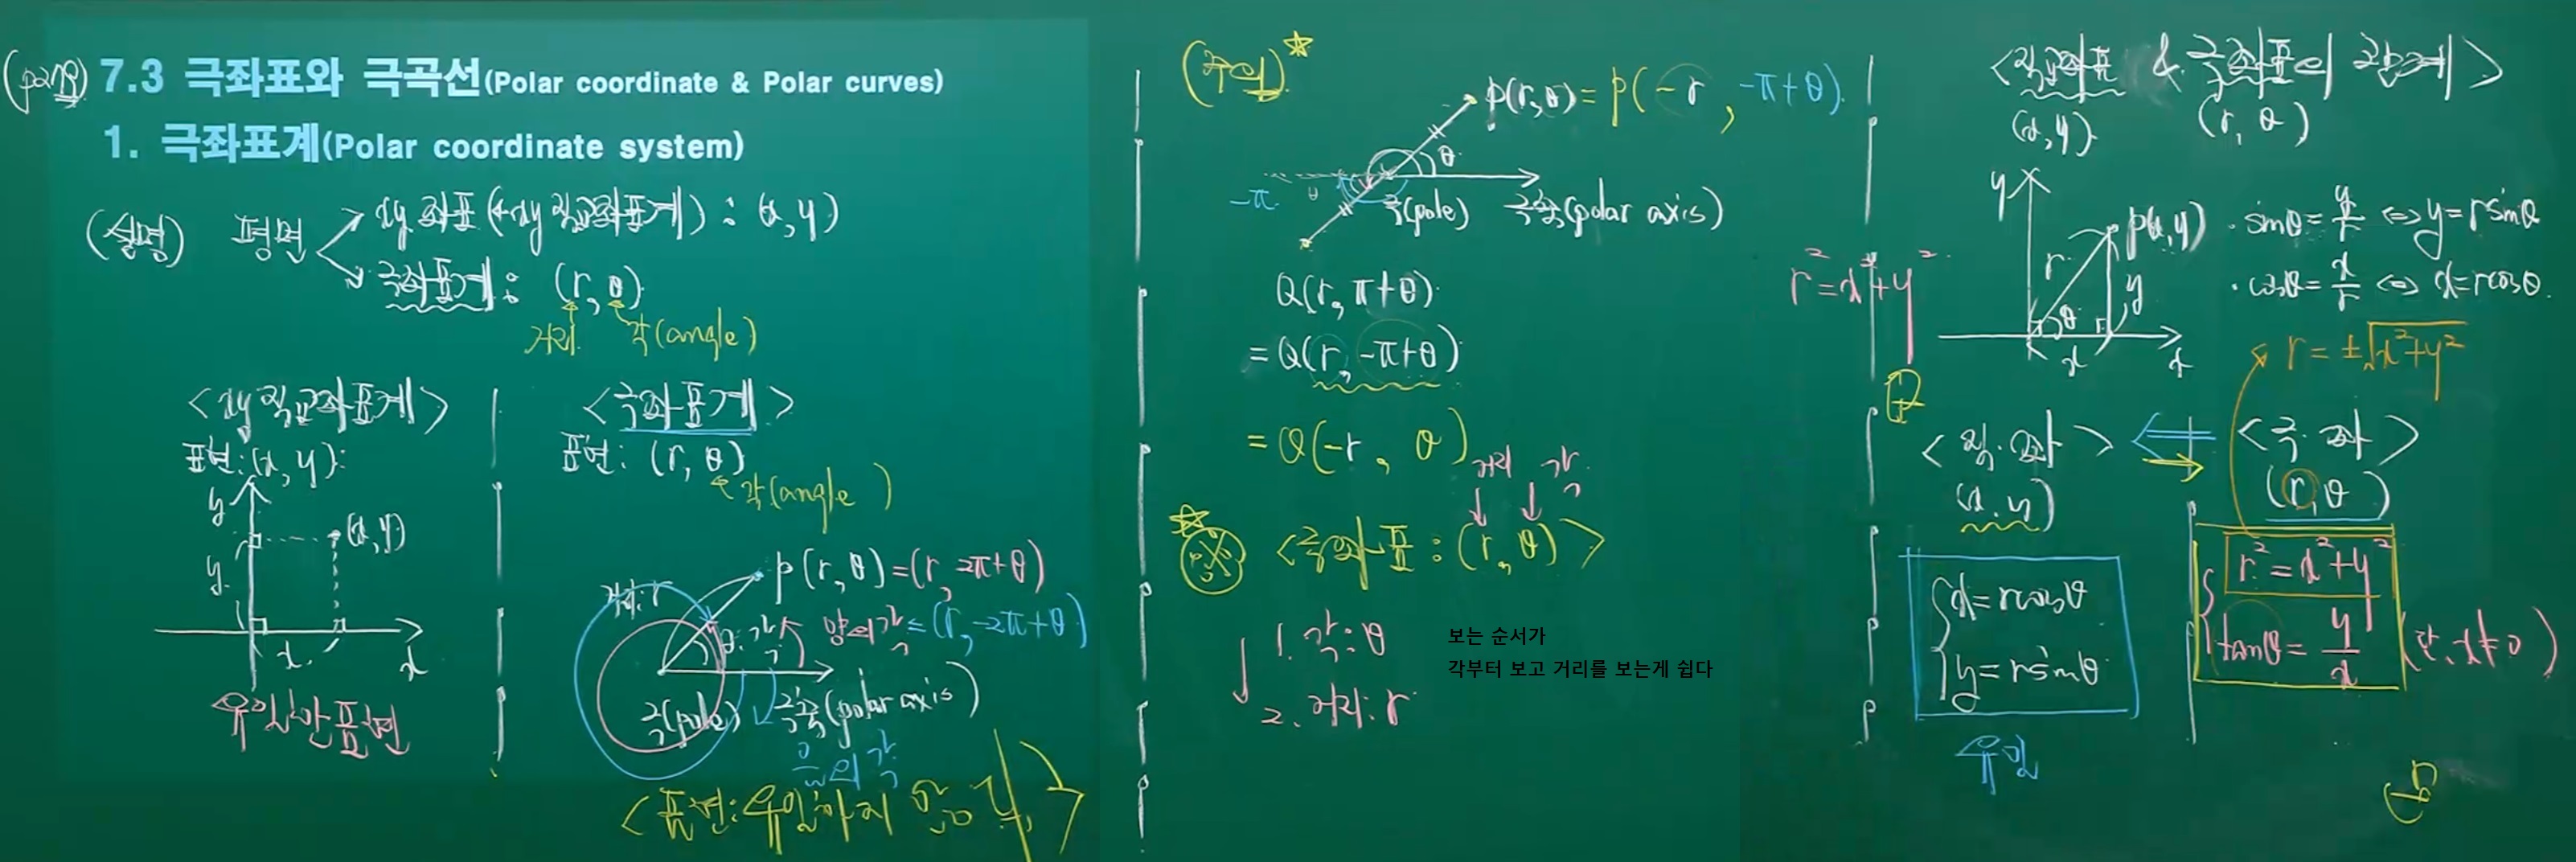 (part Ⅱ) 7.3 극좌표와 극곡선(Polar coordinate & Polar curves)
1. 극좌표계(Polar coordinate system)
(설명) 평면
xy 좌표 (xy 직교좌표계) : (x, y)
극좌표계 : (r, θ)
거리 각(angle)
<xy 직교좌표계>
표현: (x, y)
y
(x, y)
y
x
x
유일한 표현
<극좌표계>
표현: (r, θ)
각(angle)
거리: r
P(r, θ) = (r, 2π+θ)
θ: 각 양의 각 = (r, -2π+θ)
극(pole) 극축(polar axis)
음의 각
<표현: 유일하지 않다>
(주의)☆
P(r, θ) = P(-r, -π+θ)
θ
-π θ
극(pole) 극축(polar axis)
Q(r, π+θ)
= Q(r, -π+θ)
= Q(-r, θ)
거리 각
☆ <극좌표 : (r, θ)>
1. 각: θ
2. 거리: r
보는 순서가
각부터 보고 거리를 보는게 쉽다
<직교좌표 & 극좌표의 관계>
(x, y) (r, θ)
y
P(x, y)
r
y
θ
x
x
· sinθ = y/r ⇔ y = rsinθ
· cosθ = x/r ⇔ x = rcosθ
r² = x² + y²
r = ±√x²+y²
<직·좌> <극·좌>
(x, y) (r, θ)
x = rcosθ
y = rsinθ
유일
r² = x² + y²
tanθ = y/x (단, x≠0)